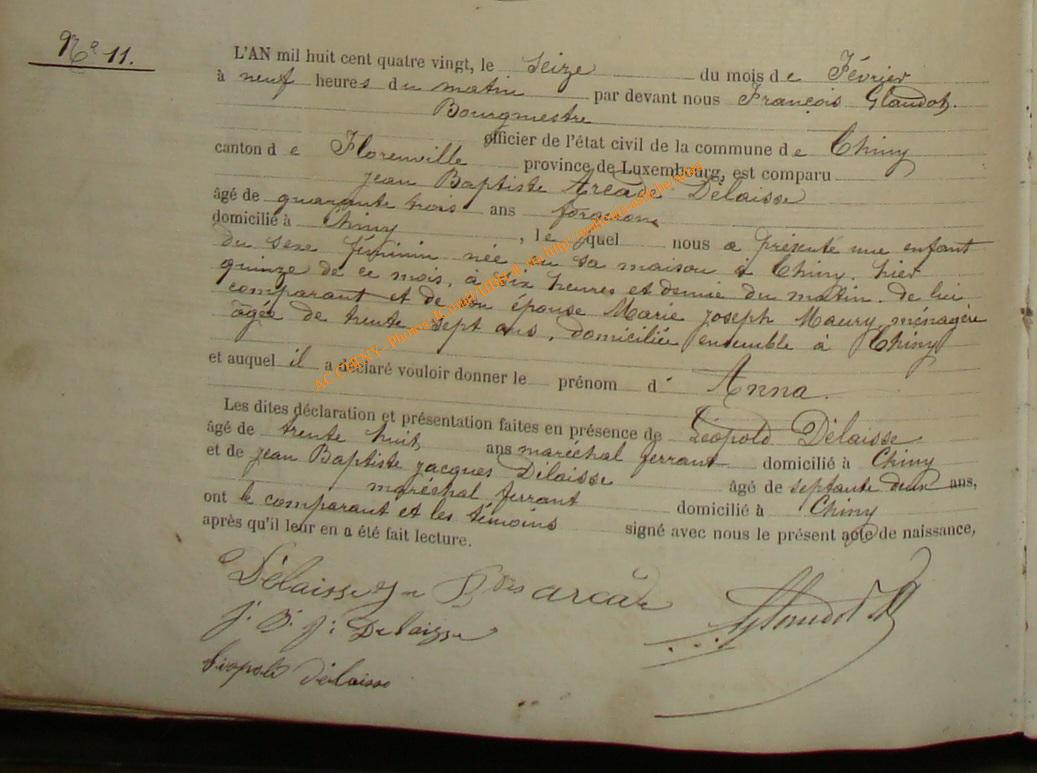 Nº 11.
L'AN mil huit cent quatre vingt, le seize du mois de Février
à neuf heures du matin par devant nous François Glaudot.
Bourgmestre
officier de l'état civil de la commune de Chiny
canton de Florenville province de Luxembourg, est comparu
Jean Baptiste Arcade Délaisse
âgé de quarante trois ans forgeron
domicilié à Chiny, lequel nous a présenté une enfant
du sexe féminin née en sa maison à Chiny. hier
quinze de ce mois, à six heures et demie du matin. de lui
comparant et de son épouse Marie Joseph Maury, ménagère
âgée de trente sept ans, domiciliée ensemble à Chiny
et auquel il a déclaré vouloir donner le prénom d' Anna.
Les dites déclaration et présentation faites en présence de Léopold Délaisse
âgé de trente huit, ans maréchal ferrant domicilié à Chiny
et de Jean Baptiste Jacques Délaisse âgé de septante deux ans,
maréchal ferrant domicilié à Chiny
ont le comparant et les témoins signé avec nous le présent acte de naissance,
après qu'il leur en a été fait lecture.
Délaisse Jn Bte arcade
J. B. J. Delaisse Glaudot
Léopold délaisse